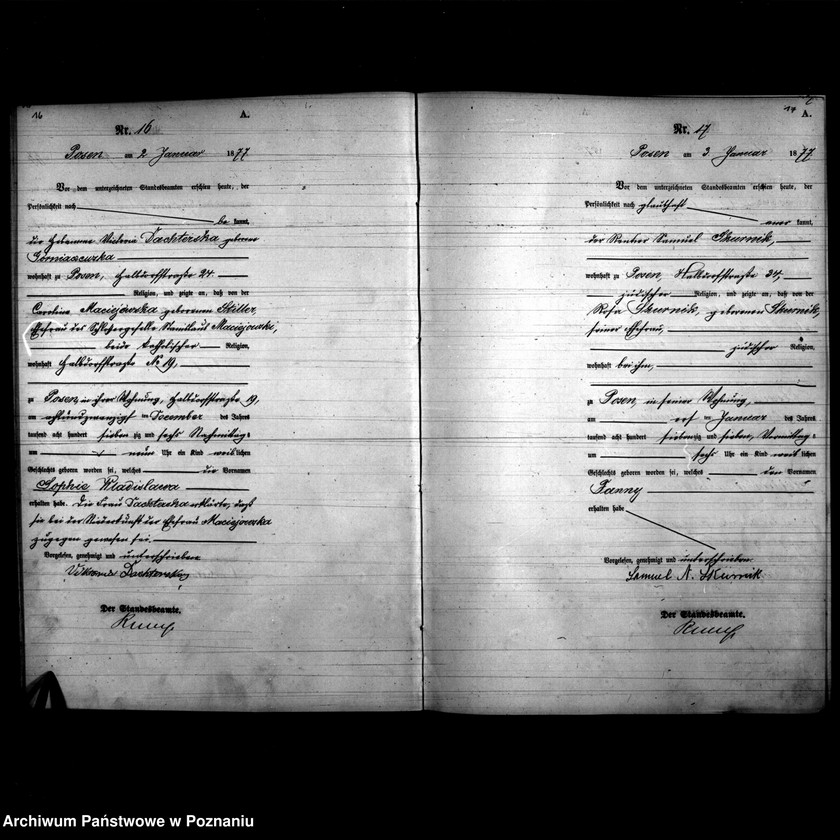 16
A.
Nr. 16
Posen am 2 Januar 1877
Vor dem unterzeichneten Standesbeamten erschien heute, der
Persönlichkeit nach
be kannt,
die Hebamme Victoria Dachterska geborene
wohnhaft zu Posen, Halbdorfstraße 24
Religion, und zeigte an, daß von der
Carolina Maciejowska geborenen Stiller,
Ehefrau des Schlossergeselle Maciejowski,
beide katholischer Religion,
wohnhaft Halbdorfstraße No 19,
zu Posen, in ihrer Wohnung, Halbdorfstraße 19,
am achtundzwanzigst ten December des Jahres
tausend acht hundert sieben zig und sechs Nachmittags
um neun Uhr ein Kind weiblichen
Geschlechts geboren worden sei, welches die Vornamen
Sophie Wladislawa
erhalten habe. Die Frau Dachterska erklärte, daß
sie bei der Niederkunft der Ehefrau Maciejowska
zugegen gewesen sei.
Vorgelesen, genehmigt und unterschrieben
Dachterska
Der Standesbeamte.
17
A.
Nr. 17
Posen am 3 Januar 1877
Vor dem unterzeichneten Standesbeamten erschien heute, der
Persönlichkeit nach glaubhaft
kannt,
der Rentier Samuel Skurnik,
wohnhaft zu Posen, Halbdorfstraße 34,
jüdischer Religion, und zeigte an, daß von der
Rosa Skurnik, geborenen Skurnik,
seiner Ehefrau,
jüdischer Religion,
wohnhaft bei ihm,
zu Posen, in seiner Wohnung,
am ersten Januar des Jahres
tausend acht hundert siebenzig und sieben, Vormittags
um sechs Uhr ein Kind weiblichen
Geschlechts geboren worden sei, welches den Vornamen
Fanny
erhalten habe
Vorgelesen, genehmigt und unterschrieben
Samuel N. Skurnik
Der Standesbeamte.
Archiwum Państwowe w Poznaniu